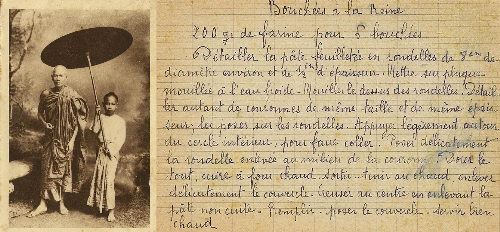 Bouchées à la Reine
200 gr de farine pour 8 bouchées
Détailler la pâte feuilletée en rondelles de 8 cm de
diamètre environ et de ½ cm d'épaisseur. Mettre sur plaque
mouillée à l'eau froide. Mouiller le dessus des rondelles. Détail
ler autant de couronnes de même taille et de même épais
seur, les poser sur les rondelles. Appuyer légèrement autour
du cercle intérieur, pour faire coller. Poser délicatement
la rondelle enlevée au milieu de la couronne. Dorer le
tout, cuire à four chaud. Sortir. Tenir au chaud enlever
délicatement le couvercle. Creuser au centre en enlevant la
pâte non cuite. Remplir. poser le couvercle. Servir bien
chaud